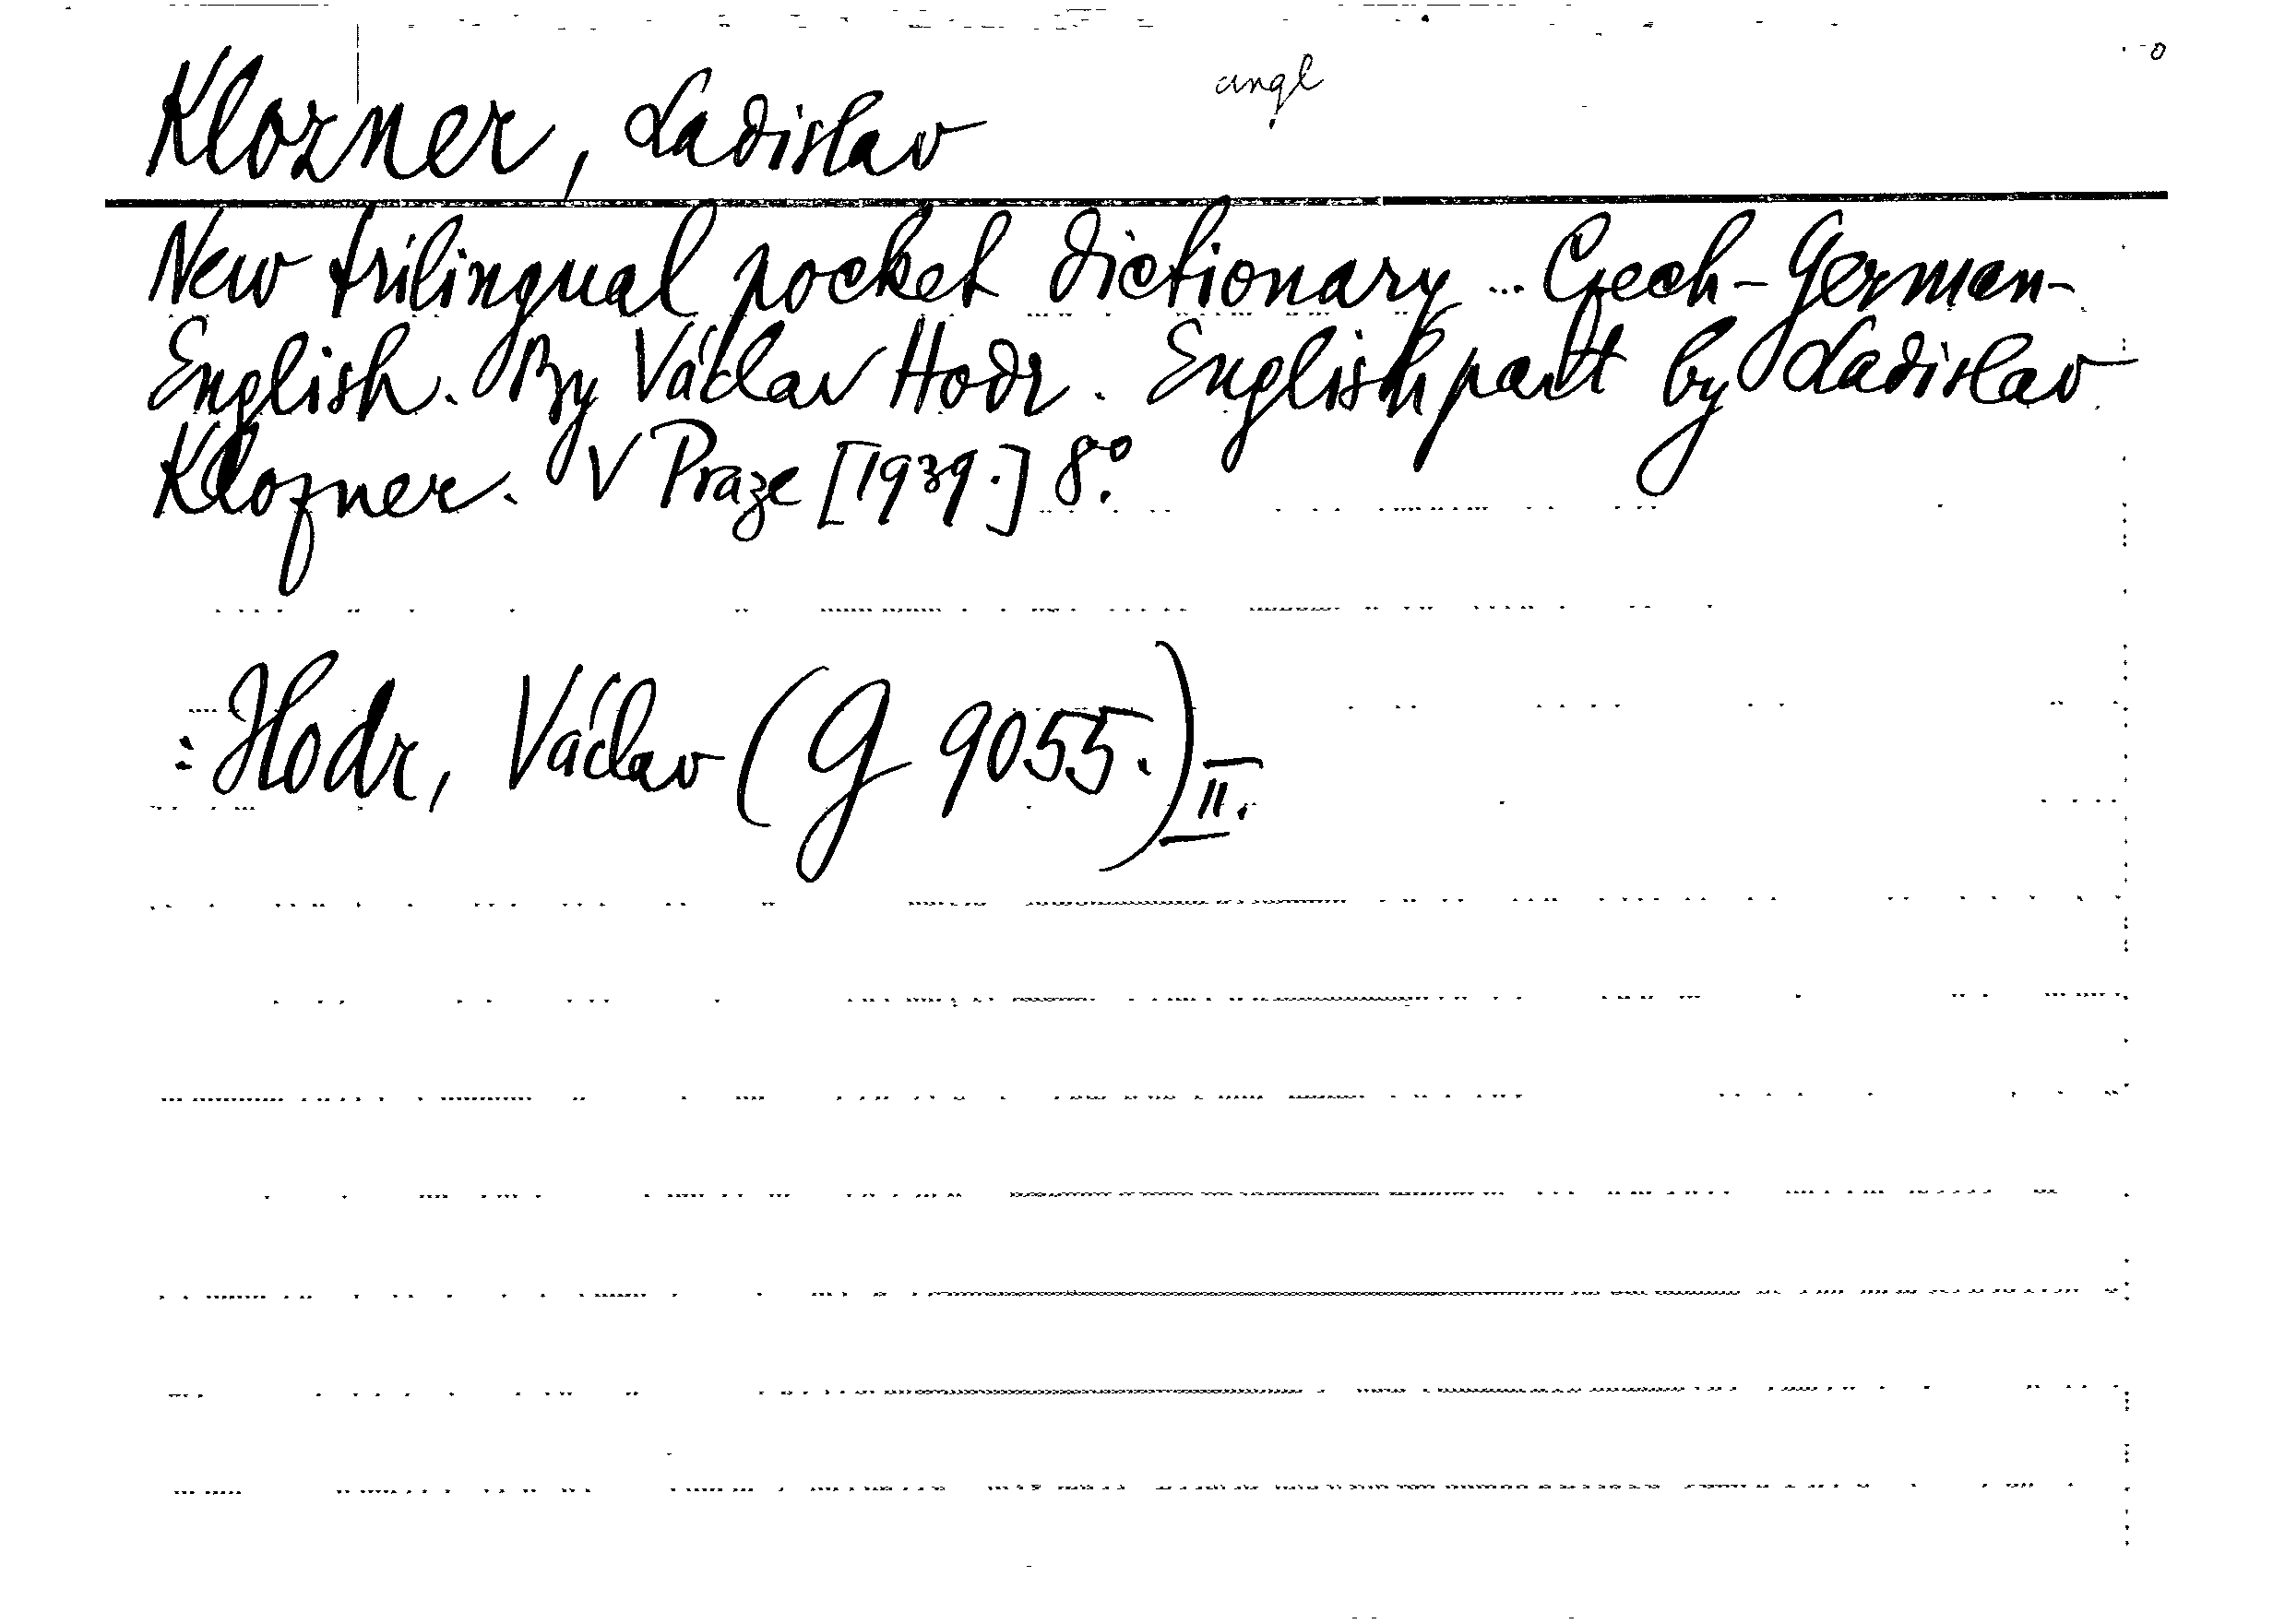 angl
Klozner, Ladislav
New trilingual pocket dictionary ... Czech-German-
English. By Václav Hodr. English part by Ladislav
Klozner. V Praze [1939.] 8º.
: Hodr, Václav (G 9055.) II.